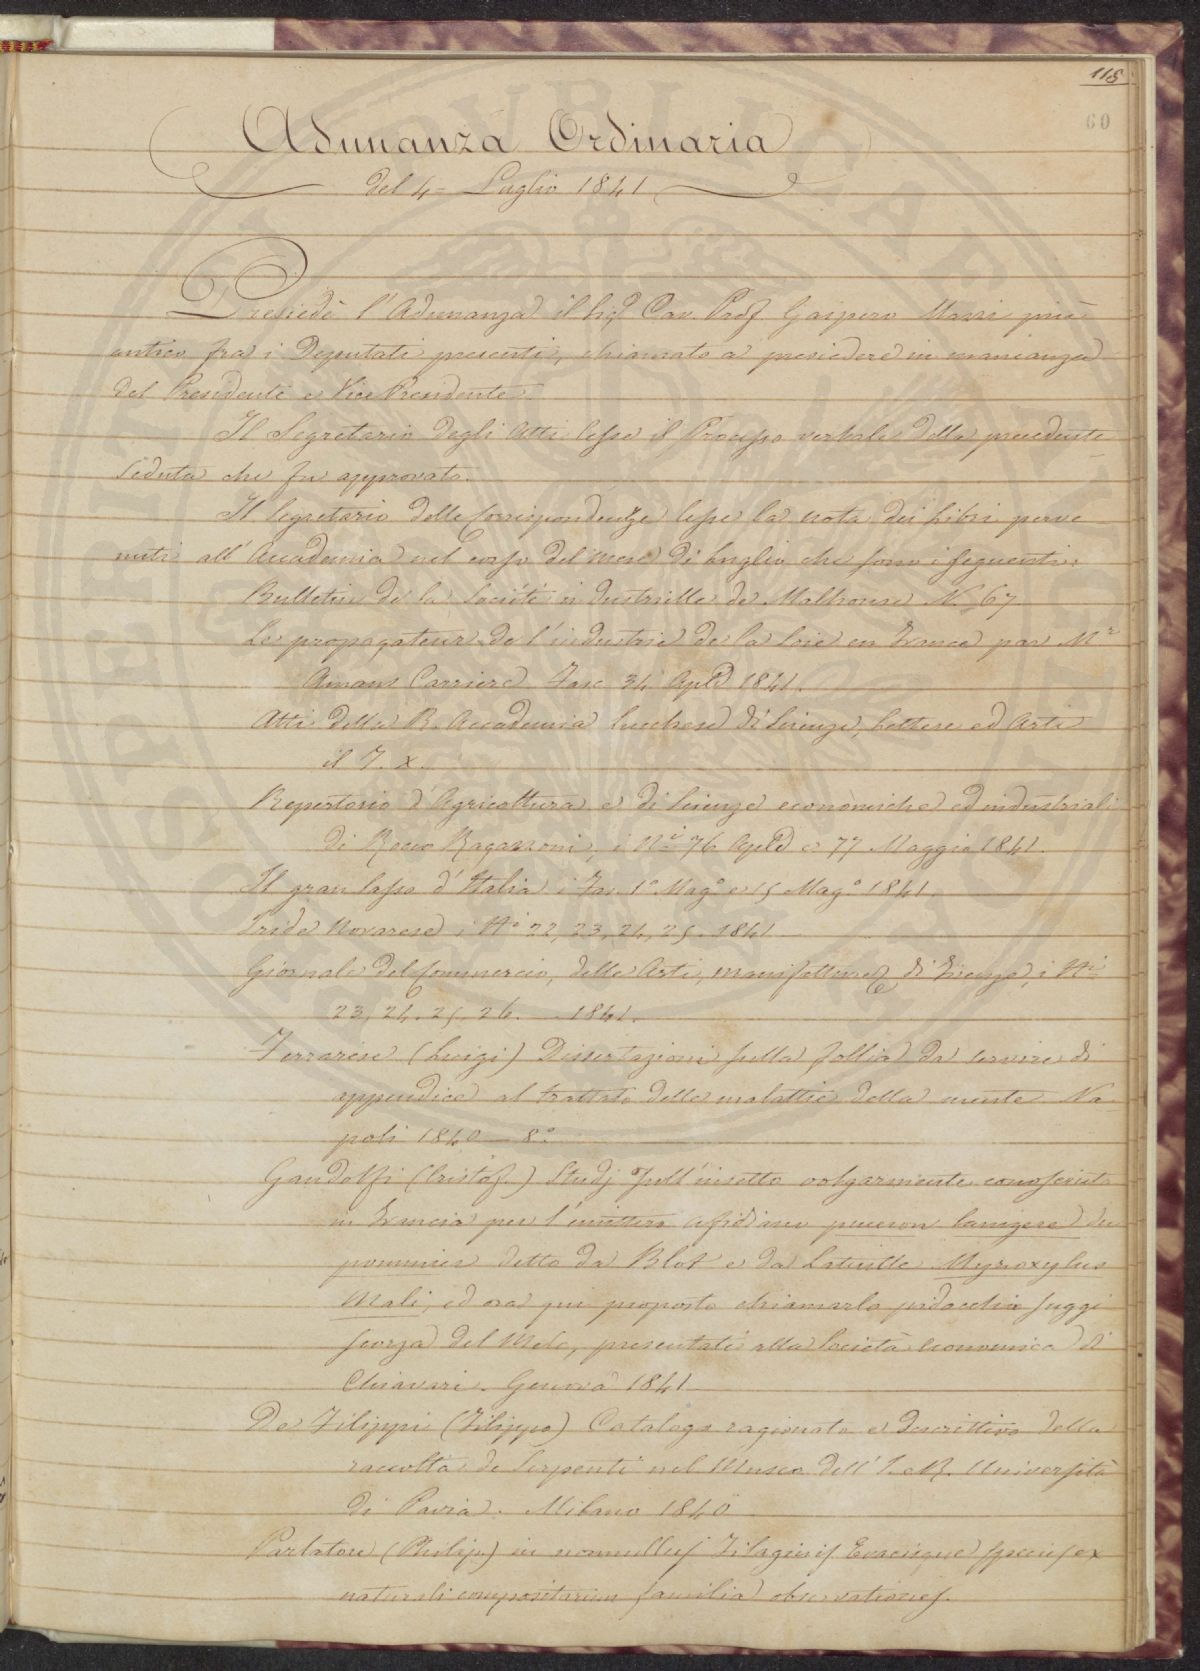 118
60
Adunanza Ordinaria
del 4 = Luglio 1841
Presiedè l'Adunanza il Sigr Cav. Prof. Gaspero Mazzi più
antico fra i Deputati presenti, chiamato a presiedere in mancanza
del Presidente e Vice Presidente.
Il Segretario degli Atti lesse il Processo verbale della precedente
Seduta che fu approvato.
Il Segretario delle Corrispondenze lesse la nota dei Libri perve
nuti all'Accademia nel corso del Mese di Luglio che sono i seguenti:
Bulletin de la Société industrielle de Malhouse N. 67
Le propagateur de l'industrie de la Soie en France par Mr
Amans Carriere Fasc 34 Aple 1841.
Atti della R. Accademia lucchese di Scienze, Lettere ed Arti
il T. X.
Repertorio d'Agricoltura e di Scienze economiche ed industriali
di Rocco Ragazzoni, i Ni 76 Aple e 77 Maggio 1841.
Il gran Sasso d'Italia i Fas. 1° Mago e 15 Mago 1841.
Iride Novarese i Ni 22, 23, 24, 25. 1841
Giornale del Commercio, delle Arti, manifatture di Firenze, i Ni
23, 24. 25. 26. 1841.
Ferrarese (Luigi) Dissertazioni sulla follia da servire di
appendice al trattato delle malattie della mente Na
poli 1840 – 8°
Gandolfi (Cristof.) Studj sull'insetto volgarmente conosciuto
in Francia per l'emittero afidiano puceron lanigere du
pommier detto da Blot e da Latreille Myzoxylus
Mali, ed ora qui proposto chiamarlo pidocchio suggi
scorza del Melo, presentati alla Società economica di
Chiavari. Genova 1841
De Filippi (Filippo) Catalogo ragionato e descrittivo della
raccolta de Serpenti nel Museo dell'I. R. Università
di Pavia. Milano 1840
Parlatore (Philip.) in nonnullas Filaginis Evacisque species ex
naturali compositarum familia observationes.